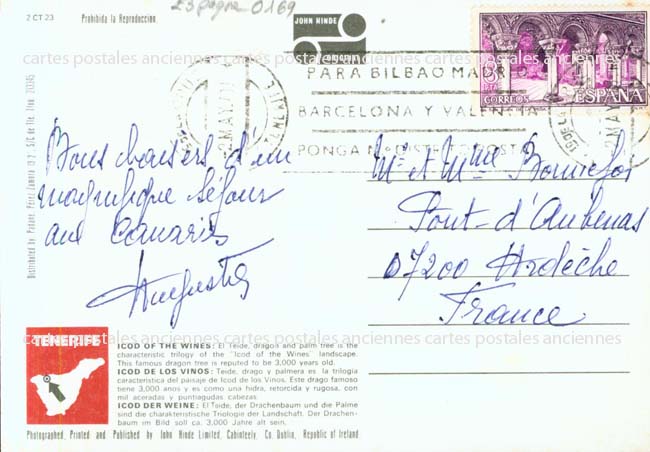 2 CT 23
Prohibida la Reproduccion
Espagne 0169
JOHN HINDE
ORIGINAL
PARA BILBAO MADRID
BARCELONA Y VALENCIA
PONGA Nº DISTRITO POSTAL
CORREOS
ESPAÑA
Distributed by Padane, Perez Zamora 13-2 S/C de Tfe. Tfno. 213345
Bons baisers d'un
magnifique séjour
aux Canaries
Augusta
Mr et Mme Bonnefoi
Pont-d'Aubenas
07200 Ardèche
France
cartes postales anciennes cartes postales anciennes cartes postales anciennes
TENERIFE
ICOD OF THE WINES: El Teide, dragon and palm tree is the
characteristic trilogy of the "Icod of the Wines" landscape.
This famous dragon tree is reputed to be 3,000 years old.
ICOD DE LOS VINOS: Teide, drago y palmera es la trilogia
caracteristica del paisaje de Icod de los Vinos. Este drago famoso
tiene 3,000 anos y es como una hidra, retorcida y rugosa, con
mil aceradas y puntiagudas cabezas.
ICOD DER WEINE: El Teide, der Drachenbaum und die Palme
sind die charakteristische Triologie der Landschaft. Der Drachen-
baum im Bild soll ca. 3,000 Jahre alt sein.
Photographed, Printed and Published by John Hinde Limited, Cabinteely, Co. Dublin, Republic of Ireland